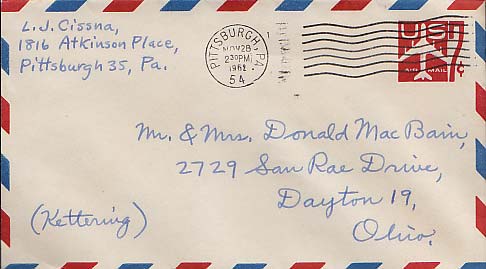 L.J. Cissna,
1816 Atkinson Place,
Pittsburgh 35, Pa.
PITTSBURGH, PA.
NOV 28
230 PM
1961
54
USA
AIR MAIL
7¢
Mr. & Mrs. Donald MacBain,
2729 San Rae Drive,
Dayton 19,
Ohio.
(Kettering)